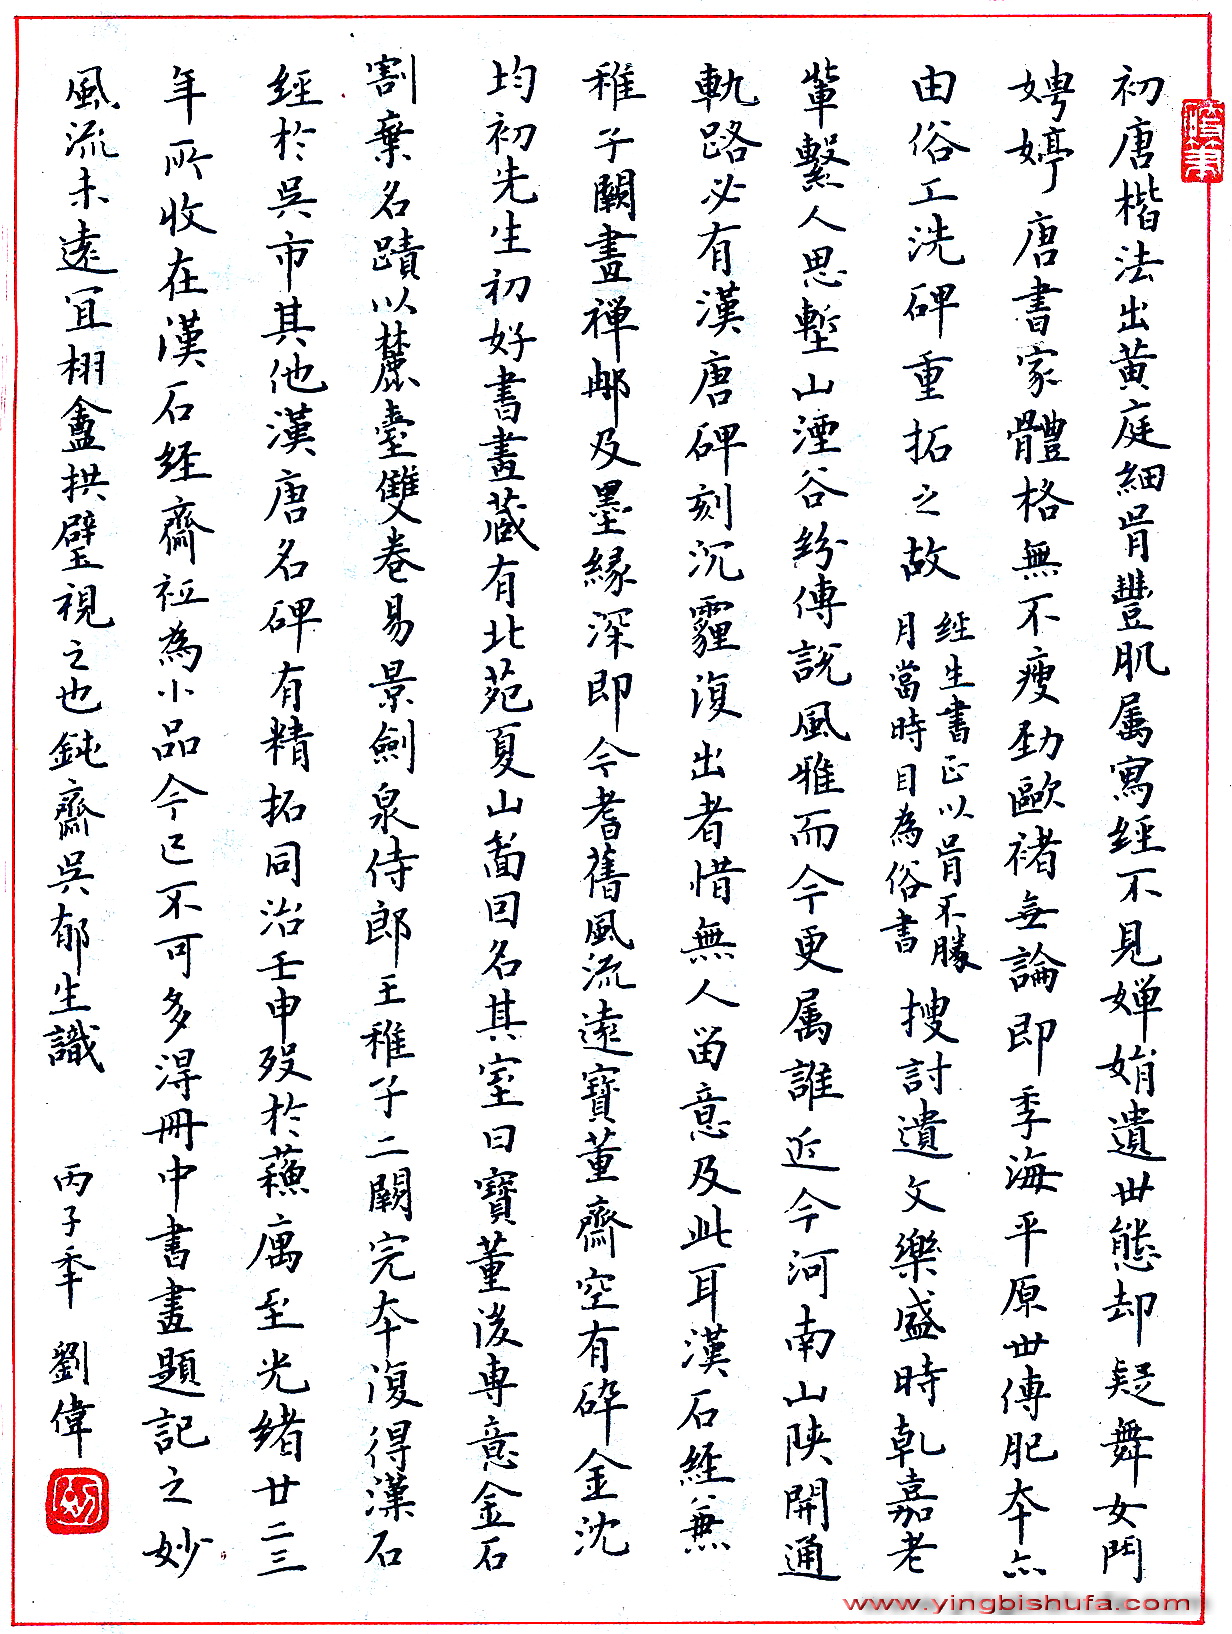 初唐楷法出黄庭細骨豐肌属寫經不見嬋娟遺世態却疑舞女鬥
娉婷唐書家體格無不瘦勁歐褚無論即季海平原世傳肥本亦
由俗工洗碑重拓之故
經生書正以骨不勝
月當時目為俗書
搜討遺文樂盛時乾嘉老
輩繫人思塹山湮谷紛傳說風雅而今更属誰近今河南山陝開通
軌路必有漢唐碑刻沉霾復出者惜無人留意及此耳漢石經兼
稚子闕畫禅郵及墨緣深即今耆舊風流遠寶董齋空有碎金沈
均初先生初好書畫藏有北苑夏山啚因名其室曰寶董後專意金石
割棄名蹟以麓臺雙卷易景劍泉侍郎王稚子二闕完本復得漢石
經於吳市其他漢唐名碑有精拓同治壬申歿於蘓厲至光緒廿二三
年所收在漢石經齋祇為小品今已不可多得冊中書畫題記之妙
風流未遠宜栩盦拱璧視之也鈍齋吳郁生識
丙子秊 劉偉
www.yingbishufa.com